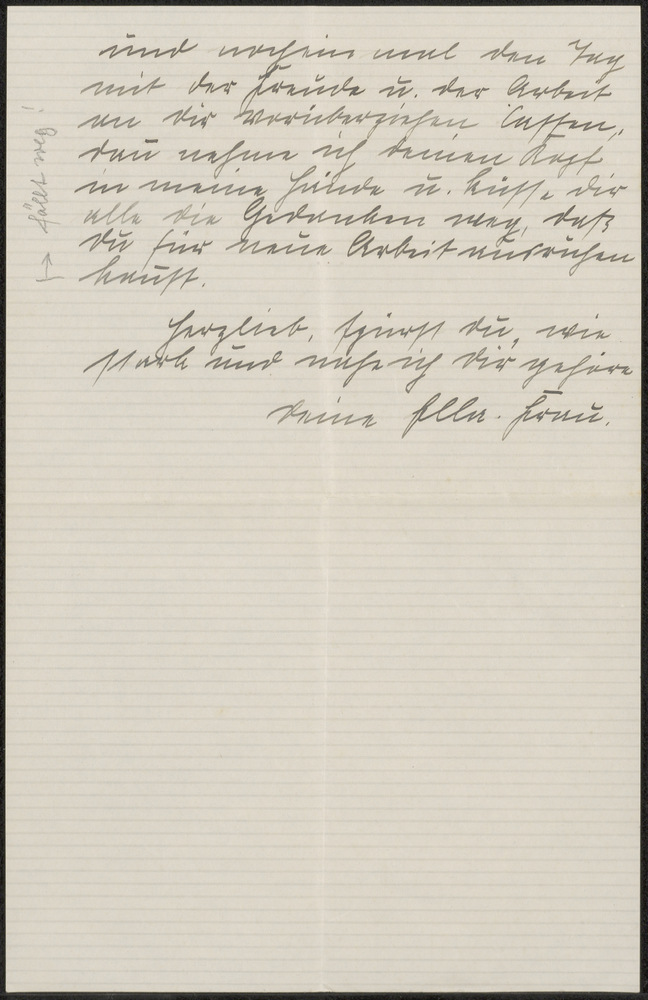 und nocheinmal den Tag
mit der Freude u. der Arbeit
an dir vorüberziehen lassen,
dan̄ nehme ich deinen Kopf
in meine Hände u. küsse dir
alle die Gedanken weg, daß
du für neue Arbeit ausruhen
kannst.
Herzlieb, spürst du, wie
stark und nahe ich dir gehöre
deine Ella. Frau.
↦ fällt weg!